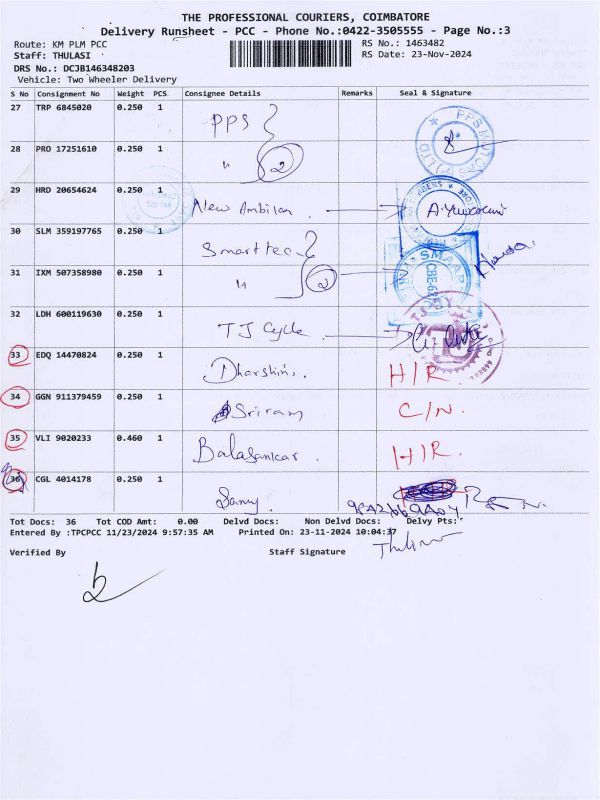 THE PROFESSIONAL COURIERS, COIMBATORE
Delivery Runsheet - PCC - Phone No.:0422-3505555 - Page No.:3
Route: KM PLM PCC RS No.: 1463482
Staff: THULASI RS Date: 23-Nov-2024
DRS No.: DCJB146348203
Vehicle: Two Wheeler Delivery
S No Consignment No Weight PCS. Consignee Details Remarks Seal & Signature
27 TRP 6845020 0.250 1 PPS
PPS MOTORS (P) LTD
28 PRO 17251610 0.250 1 " 2
29 HRD 20654624 0.250 1 New Ambika
30 SLM 359197765 0.250 1 Smarttec
31 IXM 507358980 0.250 1 " 2
SMAAR
CBE-62
32 LDH 600119630 0.250 1 TJ Cycle
33 EDQ 14470824 0.250 1 Dharshini H/R
34 GGN 911379459 0.250 1 Sriram C/N.
35 VLI 9020233 0.460 1 Balasankar H/R.
36 CGL 4014178 0.250 1 Samy
Tot Docs: 36 Tot COD Amt: 0.00 Delvd Docs: Non Delvd Docs: Delvy Pts:
Entered By :TPCPCC 11/23/2024 9:57:35 AM Printed On: 23-11-2024 10:04:37
Verified By Staff Signature